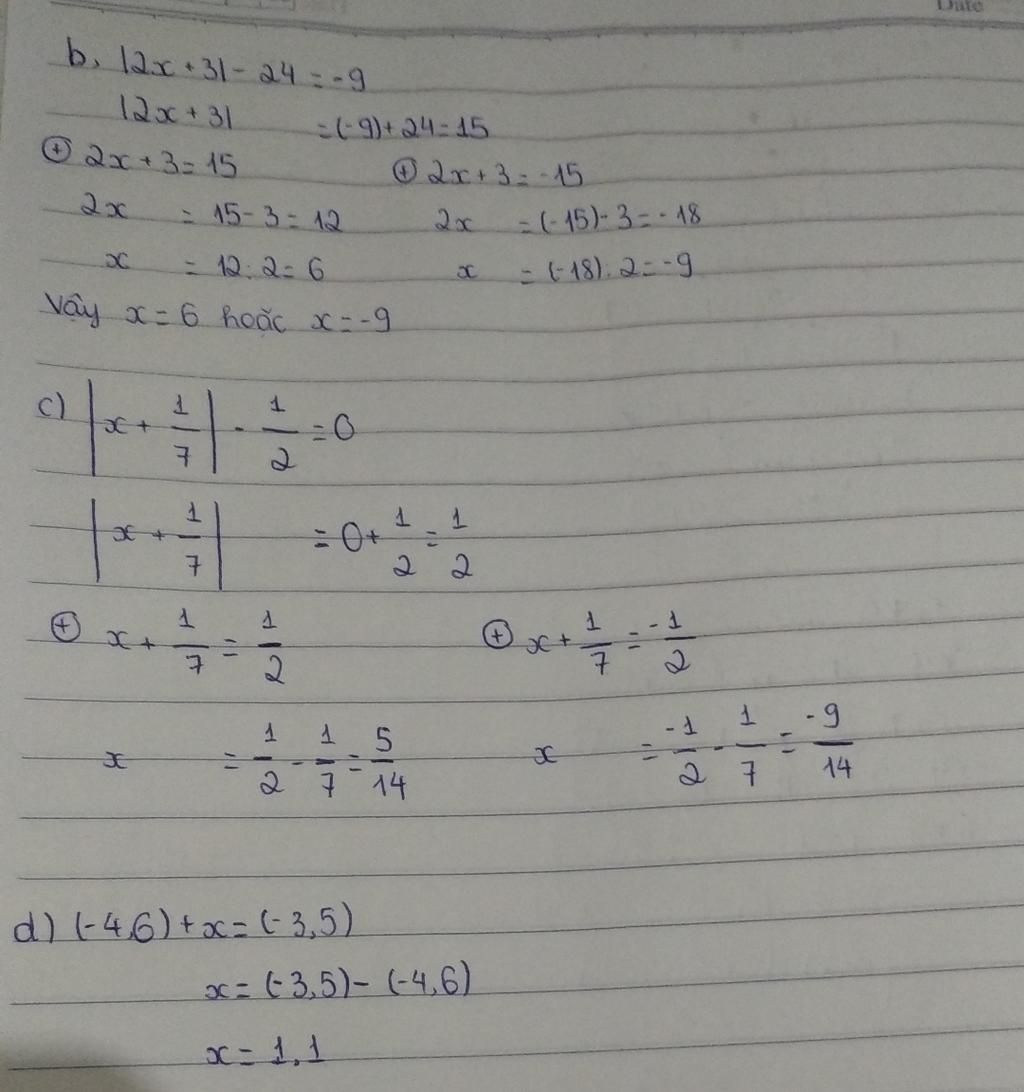 Date
b, |2x+3|-24=-9
|2x+3| =(-9)+24=15
⊕ 2x+3=15 ⊕ 2x+3=-15
2x = 15-3=12 2x =(-15)-3=-18
x = 12:2=6 x =(-18):2=-9
Vậy x=6 hoặc x=-9
c) |x+1/7|-1/2=0
|x+1/7| =0+1/2=1/2
⊕ x+1/7=1/2 ⊕ x+1/7=-1/2
x =1/2-1/7=5/14 x =-1/2-1/7=-9/14
d) (-4,6)+x=(-3,5)
x=(-3,5)-(-4,6)
x=1,1